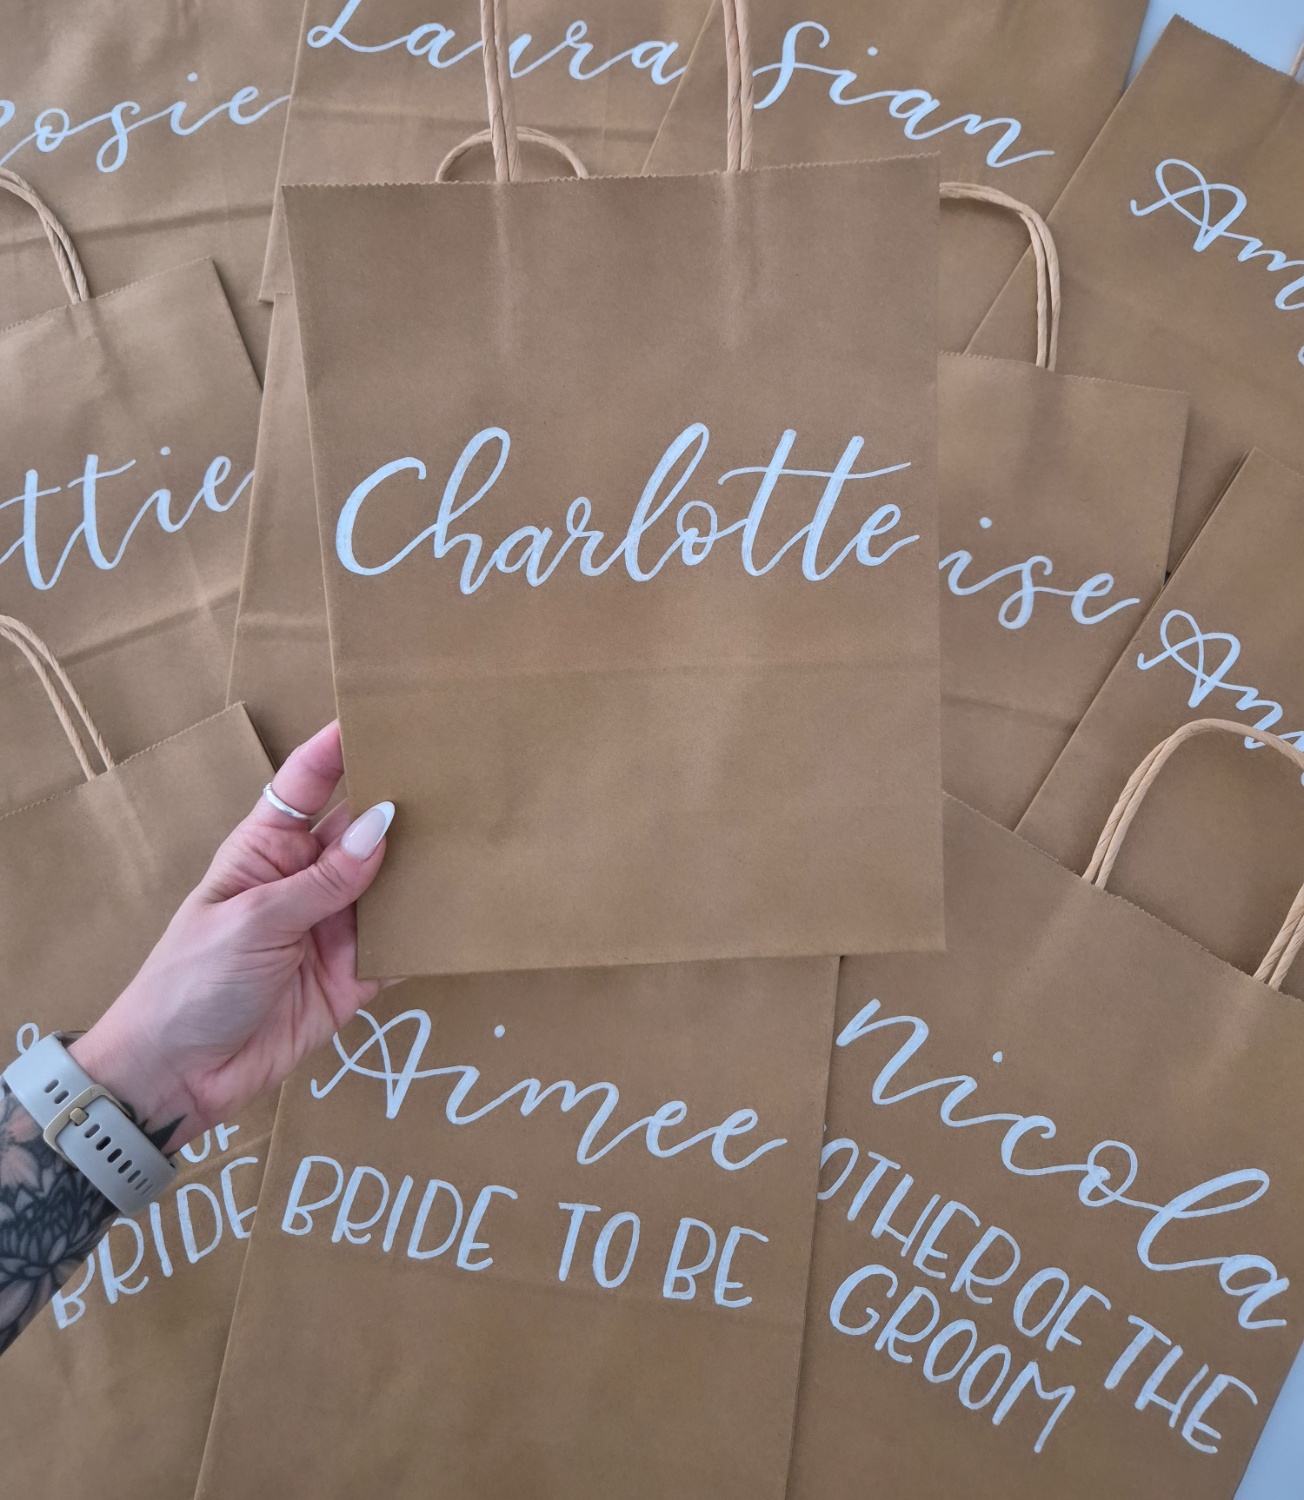 Rosie
Laura
Sian
Am
ttie
Charlotte
ise
Ann
OF
BRIDE
Aimee
BRIDE TO BE
Nicola
OTHER OF THE
GROOM